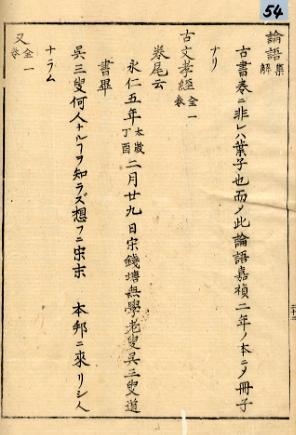 54
論語集解
古書卷ニ非レハ葉子也而ノ此論語嘉禎二年ノ本ニノ冊子
ナリ
古文孝經 全一卷
卷尾云
永仁五年太歲丁酉二月廿九日宋錢塘無學老叟吳三叟道
書畢
吳三叟何人ナルヿヲ知ラズ想フニ宋末 本邦ニ來リシ人
ナラム
又 全一卷